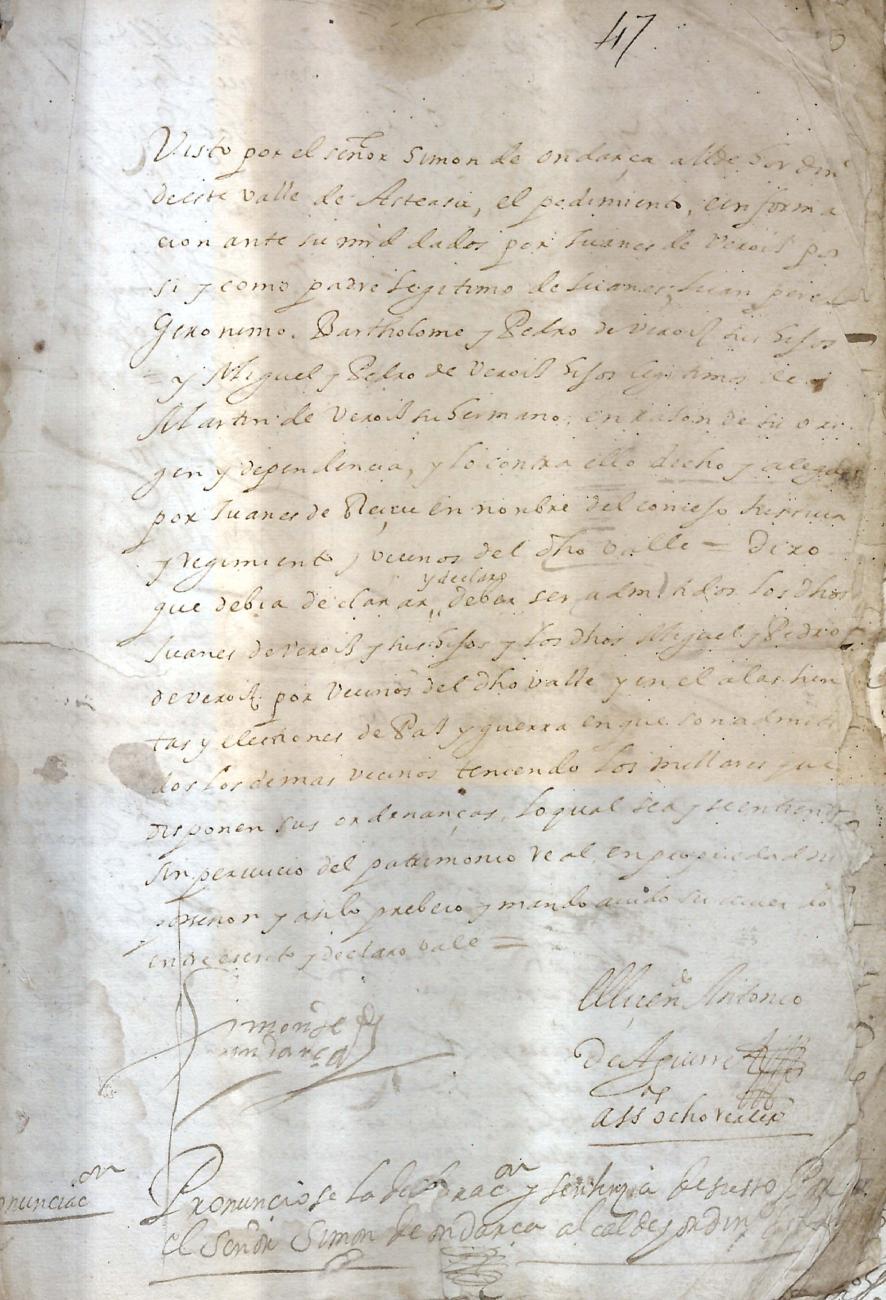 47
Visto por el señor Simon de ondarça allde hordinº
deeste valle de Asteasu, el pedimiento, einforma
cion ante su mrd dados por Juanes de Veroiz por
si y como padre legitimo de Juanes, Juan perez
Geronimo, Bartholome y Pedro de Veroiz sus hijos
= y Miguel y Pedro de Veroiz hijos legitimos de
Martin de Veroiz su hermano, en rason de su ori
gen y dependencia, y lo contra ello decho y alegado
por Juanes de en nonbre del concejo Justicia
y regimiento y vecinos del dho valle = dixo
que debia declarar y declaro deber ser admitidos los dhos
Juanes de Veroiz y sus hijos y los dhos Miguel y Pedro
de Veroiz por vecinos del dho valle y en el a las Jun
tas y electiones de Paz y guerra en que son admiti
dos los demas vecinos teniendo los millares que
disponen sus ordenanças, lo qual sea y se entienda
sin perjuicio del patrimonio real, en propiedad
y asi lo probeio y mando
entre escrito y declaro vale =
Simon de
ondarça
El licenᵈᵒ Antonio
de Aguirre
assª ocho reales
nunciacᵒⁿ
Pronunciose la declaracᵒⁿ y sentencia de suso Por
el señor Simon de ondarca alcalde ordinº